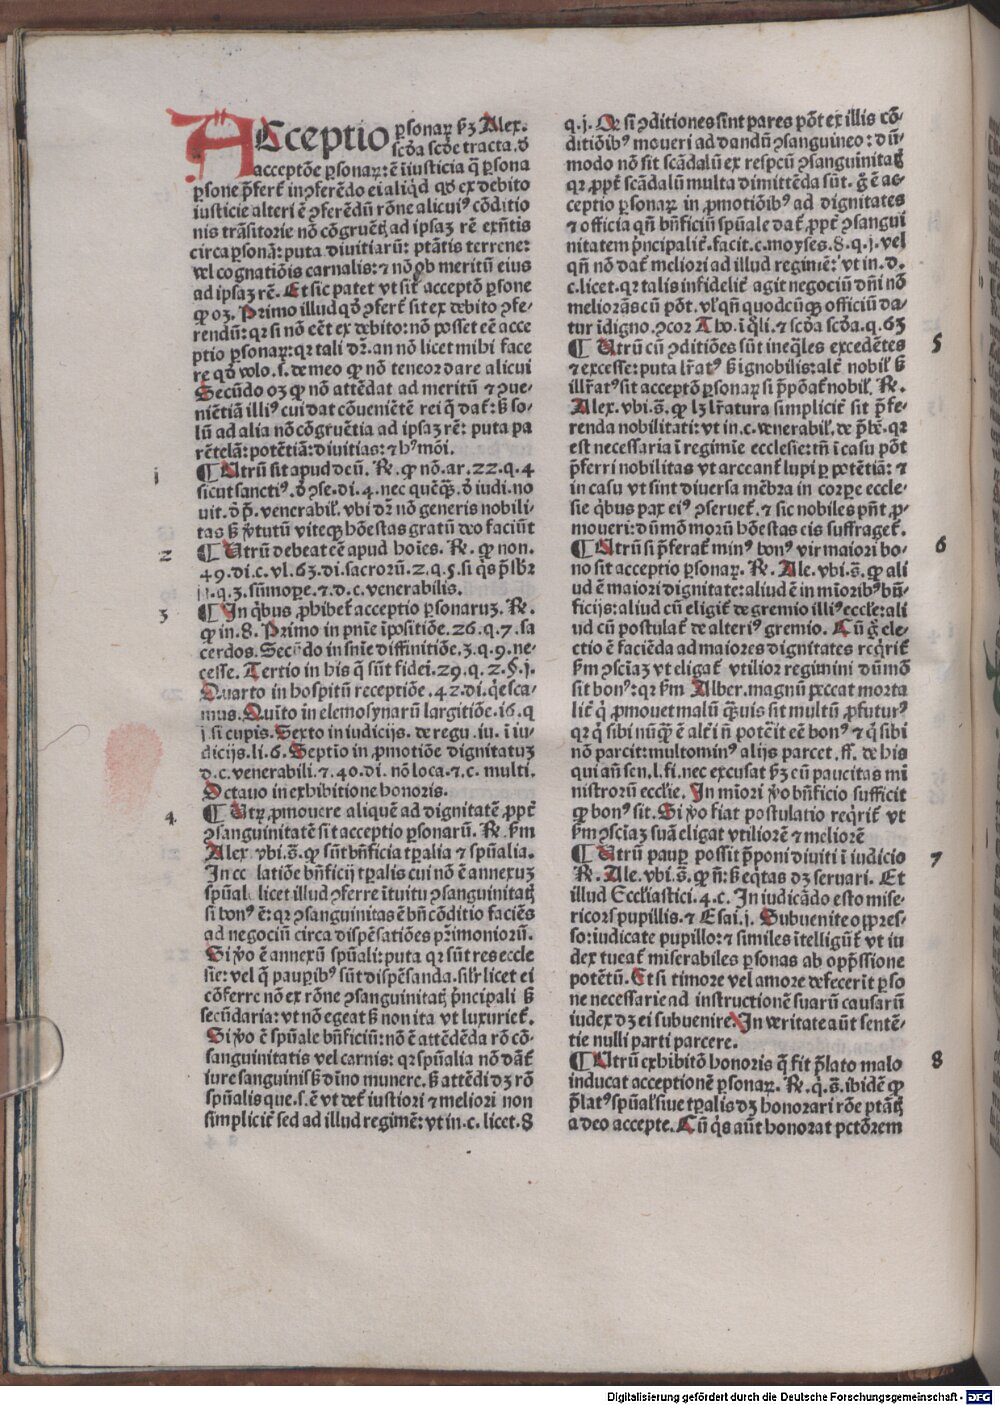 ACceptio ꝑsonaꝝ ẞꝫ Alex.
scḋa scḋe tracta. ḋ
acceptōe ꝑsonaꝝ: ē iīusticia q̄ ꝑsona
ꝑsone p̄fert᷑ in ꝯferēdo ei aliqḋ qḋ ex debito
iusticie alteri ē ꝯferēdū rōne alicuiꝰ cōditio
nis trāsitorie nō cōgruētꝭ ad ipsaꝫ rē exn̄tis
circa ꝑsonā: puta diuitiarū: ptātis terrene:
vel cognatiōis carnalis: ⁊ nō ob meritū eius
ad ipsaꝫ rē. Et sic patet vt sit᷑ acceptō ꝑsone
ꝙ oꝫ. Primo illud qḋ ꝯfert᷑ sit ex debito ꝯfe-
rendū: qꝛ si nō eēt ex debito: nō posset eē acce
ptio ꝑsonaꝝ: qꝛ tali dr̄. an nō licet mihi face
re qḋ volo. s. de meo ꝙ nō teneoꝛ dare alicui
Secūdo oꝫ ꝙ nō attēdat ad meritū ⁊ ꝯue-
niētiā illiꝰ cui dat cōueniētē rei q̄ dat᷑: sꝫ so-
lū ad alia nō cōgruētia ad ipsaꝫ rē: puta pa
rētelā: potētiā: diuitias: ⁊ hꝰmōi.
1 ¶ Utrū sit apud deū. ℞. ꝙ nō. ar. 22. q. 4
sicut sanctiꝰ. ḋ ꝯse. di. 4. nec quēꝙ̄. ḋ iudi. no
uit. ḋ p̄. venerabil̓. vbi dr̄ nō generis nobili-
tas sꝫ v̓tutū viteqꝫ hōestas gratū deo faciūt
2 ¶ Utrū debeat eē apud hoīes. ℞. ꝙ non.
49. di. c. vl. 63. di. sacrorū. 2. q. 5. si q̇s p̄sbr̄
11. q. 3. sūmope. ⁊. d. c. venerabilis.
3 ¶ In qͥbus ꝓhibet᷑ acceptio ꝑsonaruꝫ. ℞.
ꝙ in. 8. Primo in pnīe īpositiōe. 26. q. 7. sa
cerdos. Secūdo in snīe diffinitiōe. 3. q. 9. ne-
cesse. Tertio in his q̄ sūt fidei. 29. q. 2. §. j.
Quarto in hospitū receptiōe. 42. di. qͥesca-
mus. Quīto in elemosynarū largitiōe. 16. q
j. si cupis. Sexto in iudicijs. de regu. iu. ī iu-
dicijs. li. 6. Septīo in ꝓmotiōe dignitatuꝫ
d. c. venerabili. ⁊. 40. di. nō loca. ⁊. c. multi.
Octauo in exhibitione honoris.
4 ¶ Utꝝ ꝓmouere aliquē ad dignitatē ꝓpt᷑
ꝯsanguinitatē sit acceptio ꝑsonarū. ℞. ẞm
Alex. vbi. s̄. ꝙ sūt bn̄ficia tꝑalia ⁊ spūalia.
In collatiōe bn̄ficij tꝑalis cui nō ē annexuꝫ
spūal̓ licet illud ꝯferre ītuitu ꝯsanguinitatꝭ
si bonꝰ ē: qꝛ ꝯsanguinitas ē bn̄ cōditio faciēs
ad negociū circa dispēsatiōes pr̄imoniorū.
Si v̓o ē annexū spūali: puta qꝛ sūt res eccle
sīe: vel q̄ pauꝑibꝰ sūt dispēsanda. sil̓r licet ei
cōferre nō ex rōne ꝯsanguinitatꝭ p̄ncipali sꝫ
secūdaria: vt nō egeat sꝫ non ita vt luxuriet᷑.
Si v̓o ē spūale bn̄ficiū: nō ē attēdēda rō cō-
sanguinitatis vel carnis: qꝛ spūalia nō dāt᷑
iure sanguinis sꝫ diīno munere. sꝫ attēdi dꝫ rō
spūalis que. s. ē vt det᷑ iustiori ⁊ meliori non
simplicit᷑ sed ad illud regimē: vt in. c. licet. 8
q. j. Qꝛ si ꝯditiones sint pares pōt ex illis cō-
ditiōibꝰ moueri ad dandū ꝯsanguineo: dū-
modo nō sit scādalū ex respcū ꝯsanguinitatꝭ
qꝛ ꝓpt᷑ scādalū multa dimittēda sūt. g̓ ē ac-
ceptio ꝑsonaꝝ in ꝓmotiōibꝰ ad dignitates
⁊ officia qn̄ bn̄ficiū spūale dat᷑ ꝓpt᷑ ꝯsangui
nitatem p̄ncipalit᷑. facit. c. moyses. 8. q. j. vel
qn̄ nō dat᷑ meliori ad illud regimē: vt in. d.
c. licet. qꝛ talis infidelit᷑ agit negociū dn̄i nō
meliorās cū pōt. vl̓ qn̄ quodcūqꝫ officiū da-
tur īdigno. ꝯcoꝛ Tho. ī q̄li. ⁊ scḋa scḋa. q. 63
5 ¶ Utrū cū ꝯditiōes sūt ineq̄les excedētes
⁊ excesse: puta lr̄atꝰ sꝫ ignobilis: alt᷑ nobil̓ sꝫ
illr̄atꝰ sit acceptō ꝑsonaꝝ si p̄pōat᷑ nobil̓. ℞.
Alex. vbi. s̄. ꝙ lꝫ lr̄atura simplicit᷑ sit p̄fe-
renda nobilitati: vt in. c. venerabil̓. de p̄bē. qꝛ
est necessaria ī regimīe ecclesie: tn̄ ī casu pōt
p̄ferri nobilitas vt arceant᷑ lupi ꝑ potētiā: ⁊
in casu vt sint diuersa mēbra in corpe eccle-
sie qͥbus pax eiꝰ ꝯseruet᷑. ⁊ sic nobiles pn̄t ꝓ-
moueri: dūmō morū hōestas eis suffraget᷑.
6 ¶ Utrū si p̄ferat᷑ minꝰ bonꝰ vir maiori bo-
no sit acceptio ꝑsonaꝝ. ℞. Ale. vbi. s̄. ꝙ ali
ud ē maiori dignitate: aliud ē in mīoribꝰ bn̄-
ficijs: aliud cū eligit᷑ de gremio illiꝰ eccl̓e: ali
ud cū postulat᷑ de alteriꝰ gremio. Cū g̓ ele-
ctio ē faciēda ad maiores dignitates reqͥrit᷑
ẞm ꝯsciaꝫ vt eligat᷑ vtilior regimini dūmō
sit bonꝰ: qꝛ ẞm Alber. magnū peccat morta
lit᷑ qͥ ꝓmouet malū q̄uis sit multū ꝓfuturꝰ
qꝛ qͥ sibi nūqͣ ē alt᷑i nō poterit eē bonꝰ ⁊ qͥ sibi
nō parcit: multominꝰ alijs parcet. ff. de his
qui añ sen. l. fi. nec excusat p̄ꝫ cū paucitas mī
nistrorū eccl̓ie. In mīori v̓o bn̄ficio sufficit
ꝙ bonꝰ sit. Si v̓o fiat postulatio reqͥrit᷑ vt
ẞm ꝯsciaꝫ suā eligat vtiliorē ⁊ meliorē
7 ¶ Utrū pauꝑ possit p̄poni diuiti ī iudicio
℞. Ale. vbi. s̄. ꝙ n̄: sꝫ eq̇tas dꝫ seruari. Et
illud Eccl̓iastici. 4. c. In iudicādo esto mise-
ricors pupillis. ⁊ Esai. j. Subuenite oppres-
so: iudicate pupillo: ⁊ similes ītelligūt᷑ vt iu
dex tueat᷑ miserabiles ꝑsonas ab opp̄ssione
potētū. Et si timore vel amore defecerit ꝑso
ne necessarie ad instructionē suarū causarū
iudex dꝫ ei subuenire. In veritate aūt sentē-
tie nulli parti parcere.
8 ¶ Utrū exhibitō honoris q̄ fit p̄lato malo
inducat acceptionē ꝑsonaꝝ. ℞. q̄. s̄. ibidē ꝙ
p̄latꝰ spūal̓ siue tꝑalis dꝫ honorari rōe ptātꝭ
a deo accepte. Cū qͥs aūt honorat pctōrem
Digitalisierung gefördert durch die Deutsche Forschungsgemeinschaft - DFG